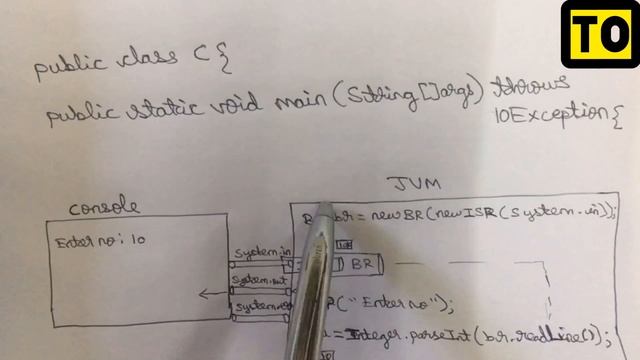 TO
public class C{
public static void main(String[]args) throws
IOException{
JVM
console
BR br = new BR(new ISR(System.in));
Enter no: 10
System.in
BR
System.out
("Enter no");
= Integer.parseInt(br.readLine());
10